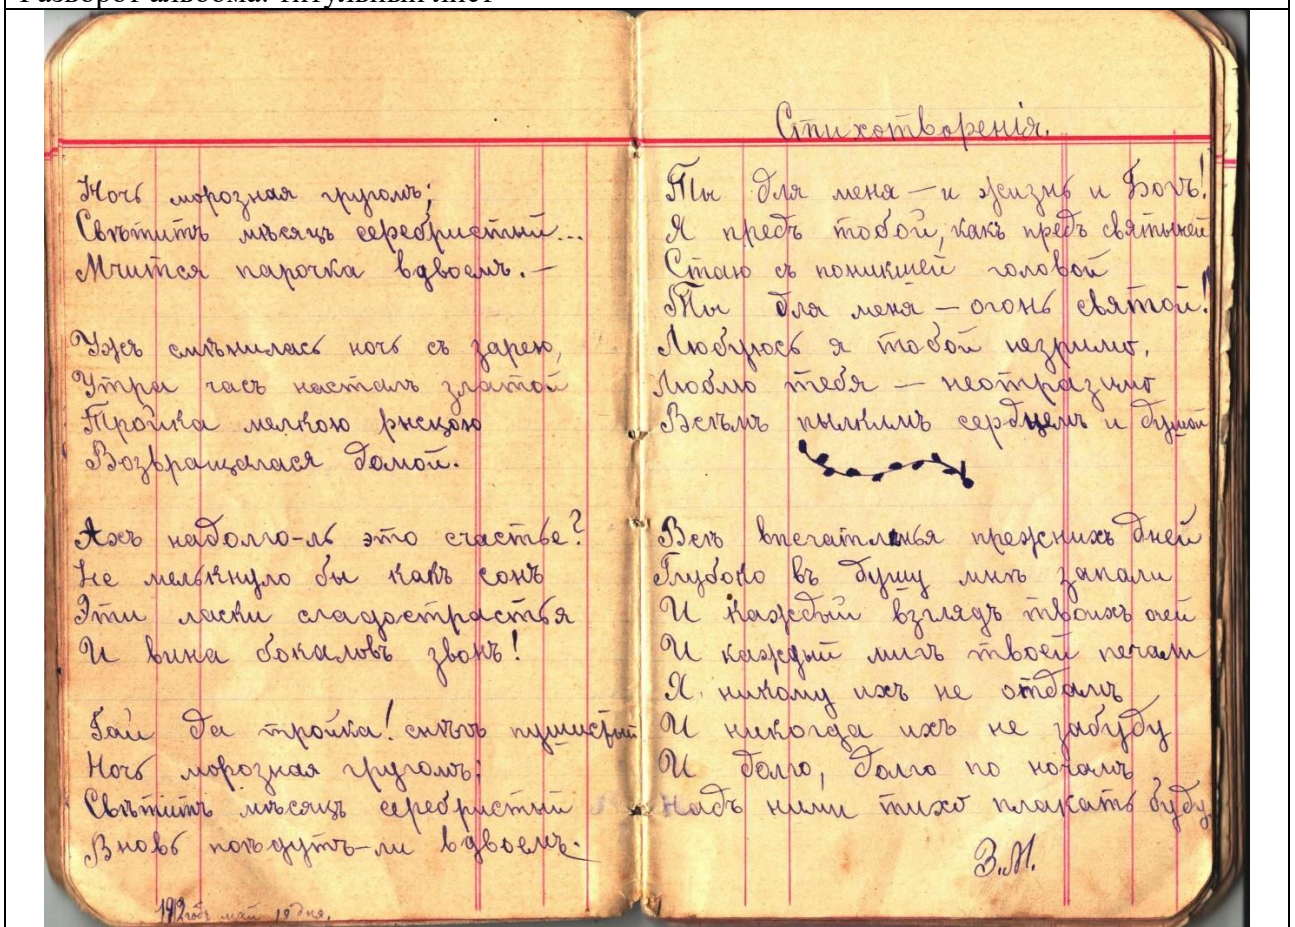 Разворот альбома. Титульный лист
Ночь морозная кругомъ;
Свѣтитъ мѣсяцъ серебристый...
Мчится парочка вдвоемъ. —
Ужъ смѣнилась ночь съ зарею,
Утра часъ насталъ златой
Тройка мелкою рысцою
Возвращалася домой.
Ахъ надолго-ль это счастье?
Не мелькнуло бы какъ сонъ
Эти ласки сладострастья
И вина бокаловъ звонъ!
Гай да тройка! снѣгъ пушистый
Ночь морозная кругомъ:
Свѣтитъ мѣсяцъ серебристый
Вновь поѣдутъ-ли вдвоемъ.
1912 годъ май 19 дня.
Стихотворенія.
Ты для меня — и жизнь и Богъ!
Я предъ тобой, какъ предъ святыней
Стаю съ поникшей головой
Ты для меня — огонь святой!
Любуюсь я тобой незримо,
Люблю тебя — неотразимо
Всѣмъ пылкимъ сердцемъ и душой
Всѣ впечатлѣнья прежнихъ дней
Глубоко въ душу мнѣ запали
И каждый взглядъ твоихъ очей
И каждый мигъ твоей печали
Я никому ихъ не отдамъ
И никогда ихъ не забуду
И долго, долго по ночамъ
Надъ ними тихо плакать буду.
З.М.